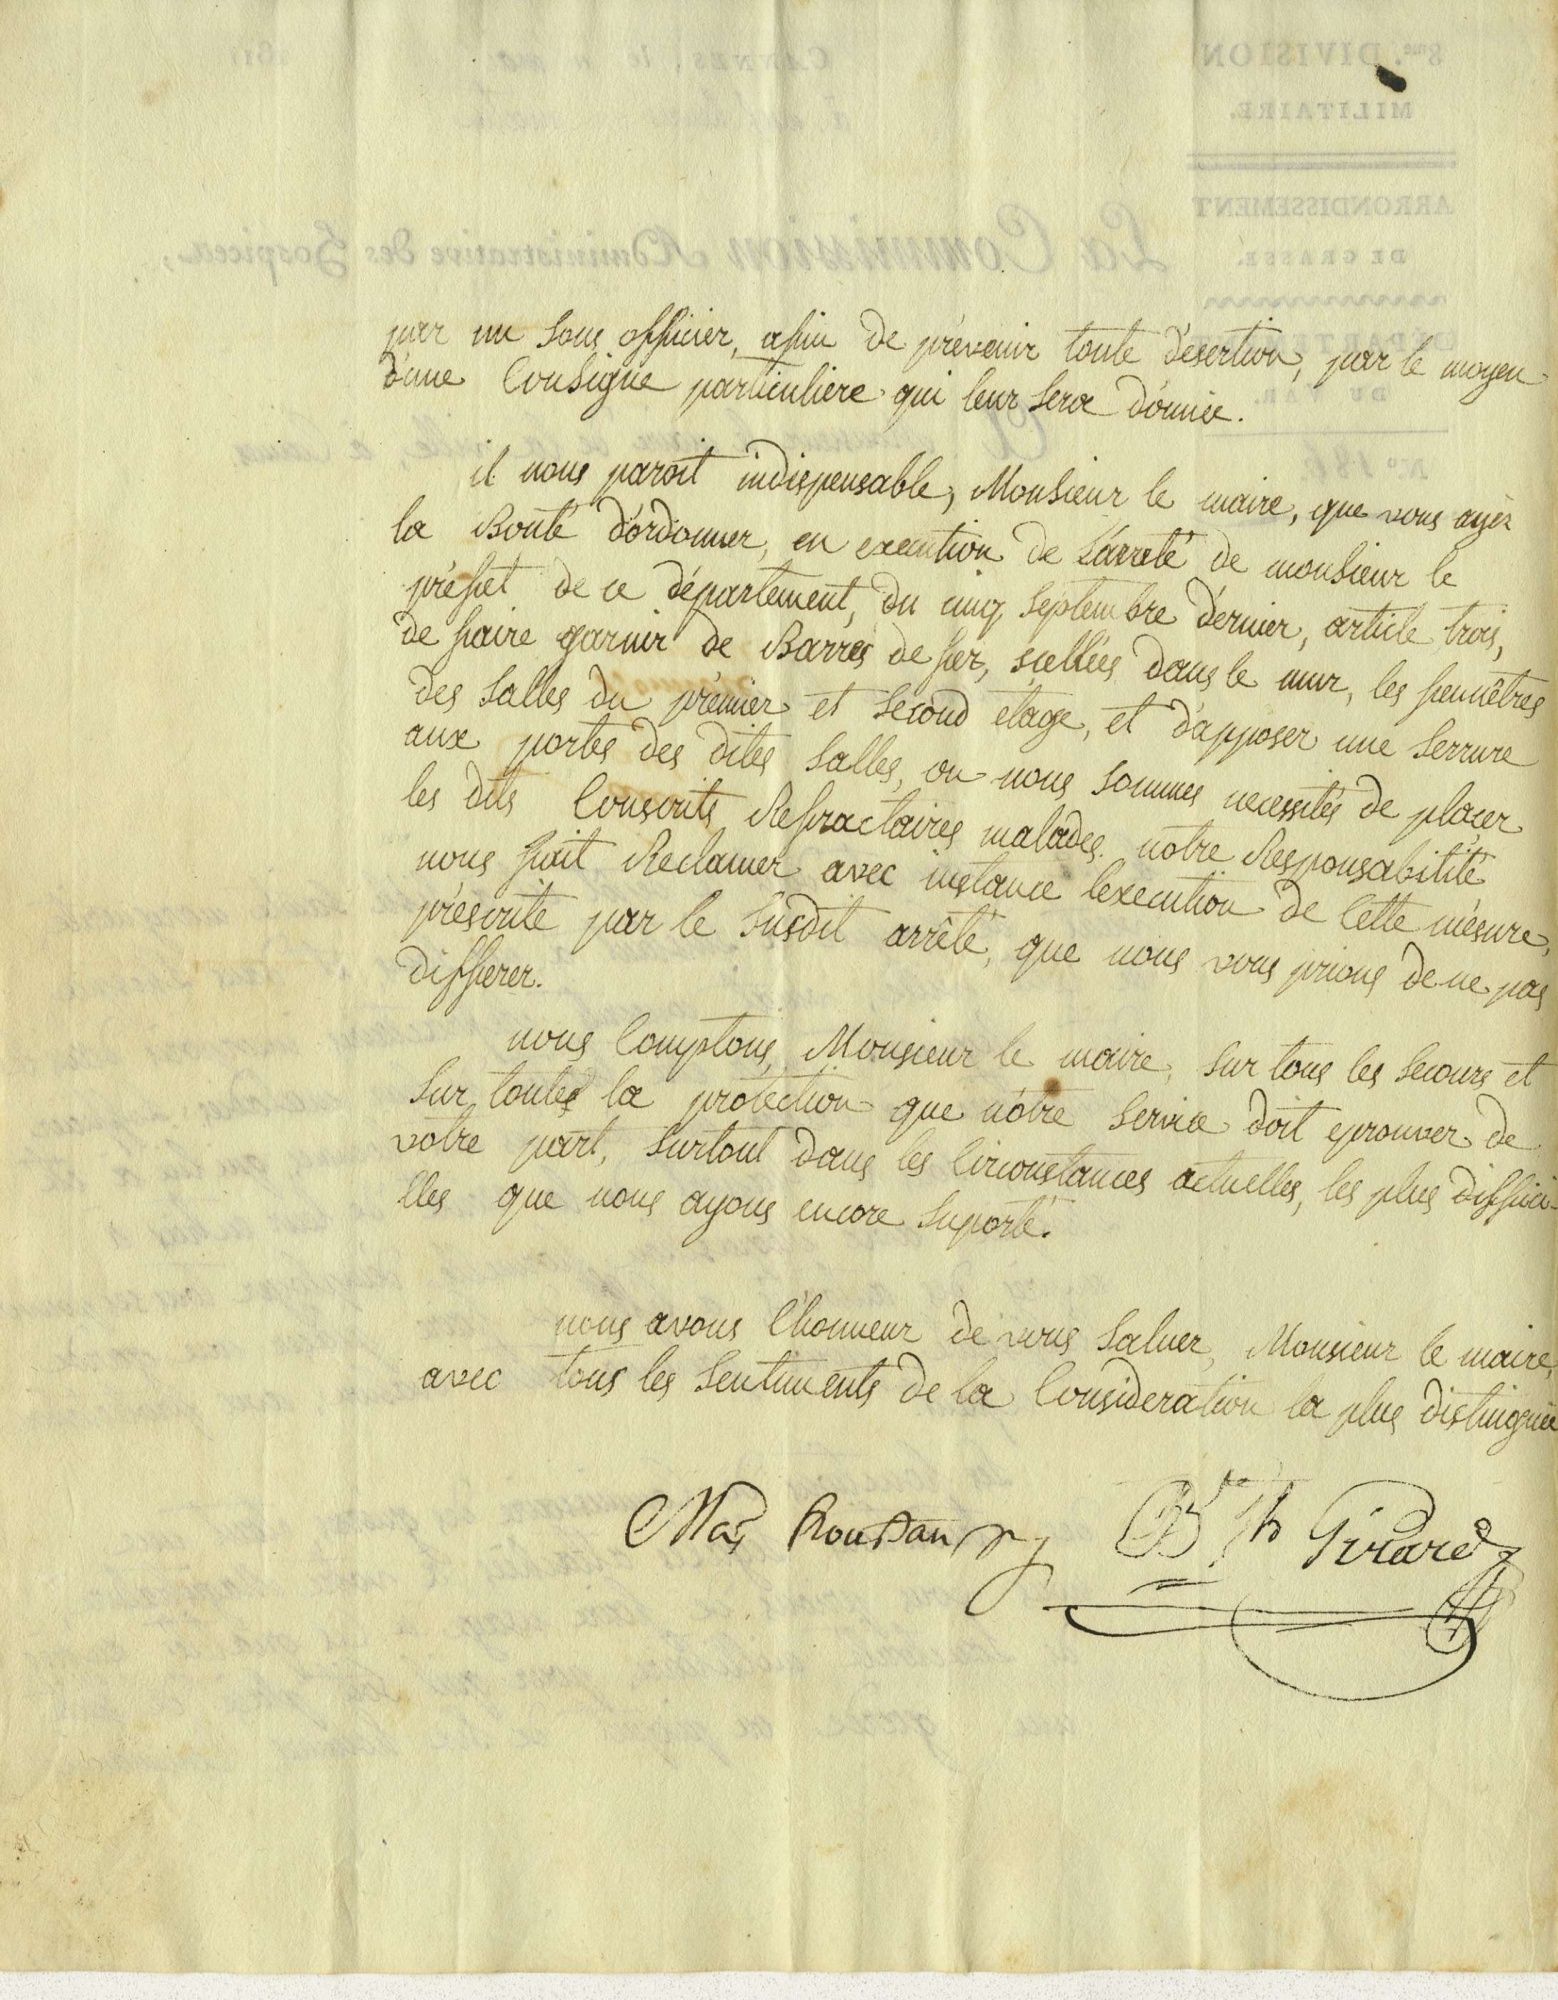 par un sous officier, afin de prévenir toute désertion, par le moyen
d'une Consigne particuliere qui leur sera donnée.
il nous paroit indispensable, Monsieur le maire, que vous ayéz
la Bonté d'ordonner, en execution de L'arreté de monsieur le
préfet de ce département, du cinq septembre dernier, article trois,
de faire garnir de Barres de fer, scellées dans le mur, les fenêtres
des salles du prémier et second etage, et d'apposer une serrure
aux portes des dites salles, ou nous sommes necessités de placer
les dits Conscrits Refractaires malades. notre Responsabilité
nous fait Reclamer avec instance l'execution de Cette mésure,
préscrite par le susdit arrêté, que nous vous prions de ne pas
differer.
nous Comptons, Monsieur le maire, sur tous les secours et
sur toute la protection que nôtre service doit eprouver de
votre part, surtout dans les Circonstances actuelles, les plus diffici-
lles que nous ayons encore suporté.
nous avons l'honneur de vous saluer, Monsieur le maire,
avec tous les sentiments de la Consideration la plus distinguée
Girard
8me. DIVISION
MILITAIRE.
ARRONDISSEMENT
DE GRASSE.
DÉPARTEMENT
DU VAR.
CANNES, le
La Commission Administrative des Hospices,